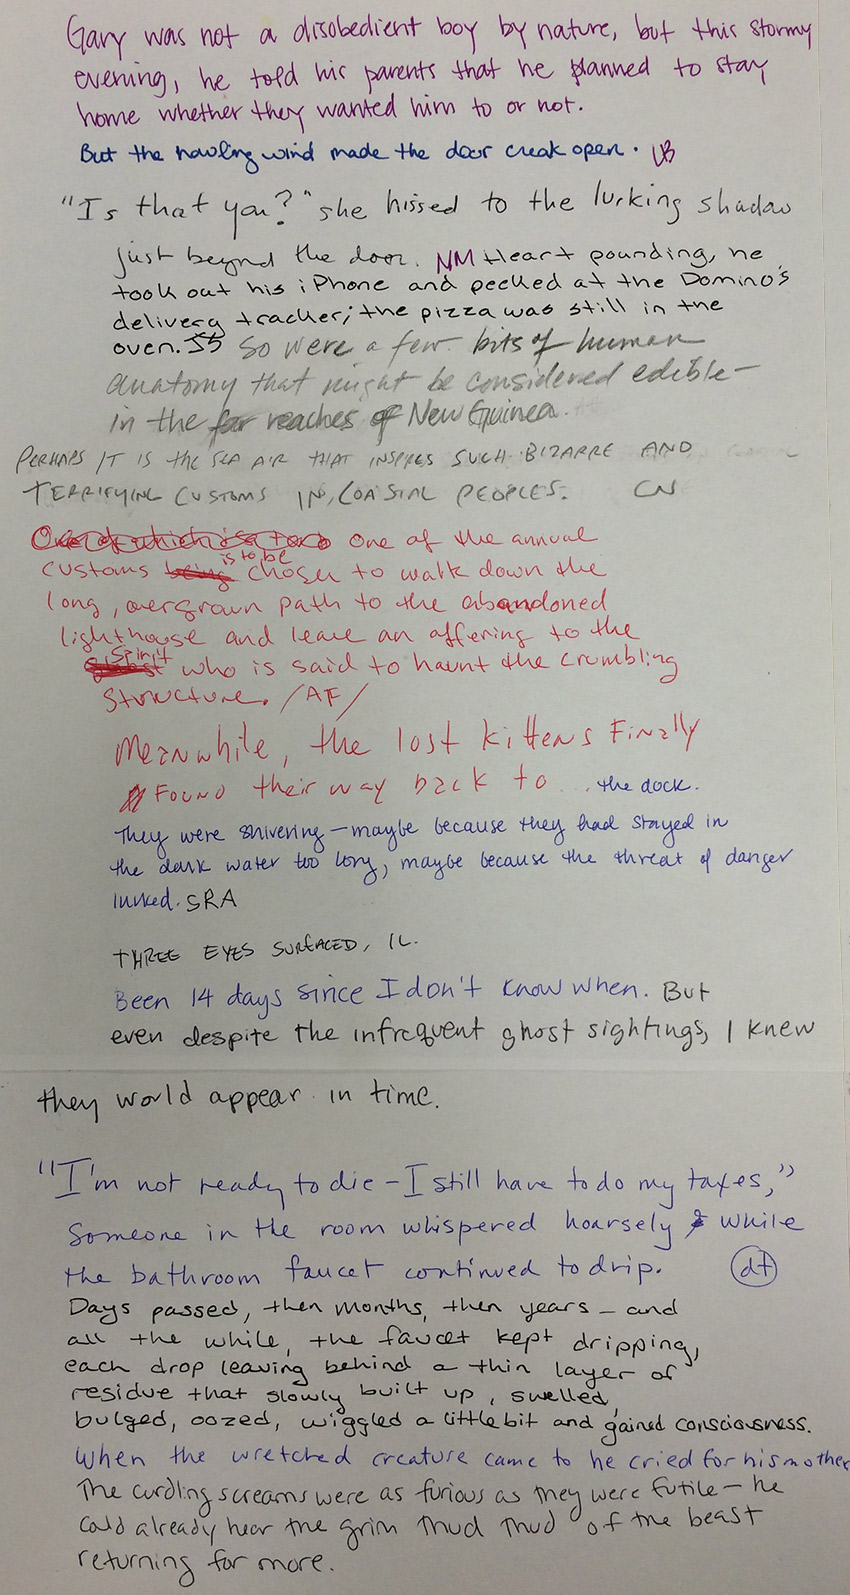 Gary was not a disobedient boy by nature, but this stormy
evening, he told his parents that he planned to stay
home whether they wanted him to or not.
But the howling wind made the door creak open. UB
"Is that you?" she hissed to the lurking shadow
just beyond the door. NM Heart pounding, he
took out his iPhone and peeked at the Domino's
delivery tracker; the pizza was still in the
oven. JS So were a few bits of human
anatomy that might be considered edible—
in the far reaches of New Guinea.
PERHAPS IT IS the SEA AIR THAT INSPIRES SUCH BIZARRE AND
TERRIFYING CUSTOMS IN COASTAL PEOPLES. CN
One of the annual
customs is to be chosen to walk down the
long, overgrown path to the abandoned
lighthouse and leave an offering to the
spirit who is said to haunt the crumbling
structure. /AF/
Meanwhile, the lost kittens Finally
Found their way back to... the dock.
They were shivering—maybe because they had stayed in
the dark water too long, maybe because the threat of danger
lurked. SRA
THREE EYES SURFACED, IL.
Been 14 days since I don't know when. But
even despite the infrequent ghost sightings, I knew
they would appear in time.
"I'm not ready to die – I still have to do my taxes,"
Someone in the room whispered hoarsely while
the bathroom faucet continued to drip. dt
Days passed, then months, then years – and
all the while, the faucet kept dripping,
each drop leaving behind a thin layer of
residue that slowly built up, swelled,
bulged, oozed, wiggled a little bit and gained consciousness.
When the wretched creature came to he cried for his mother
The curdling screams were as furious as they were futile – he
could already hear the grim thud thud of the beast
returning for more.